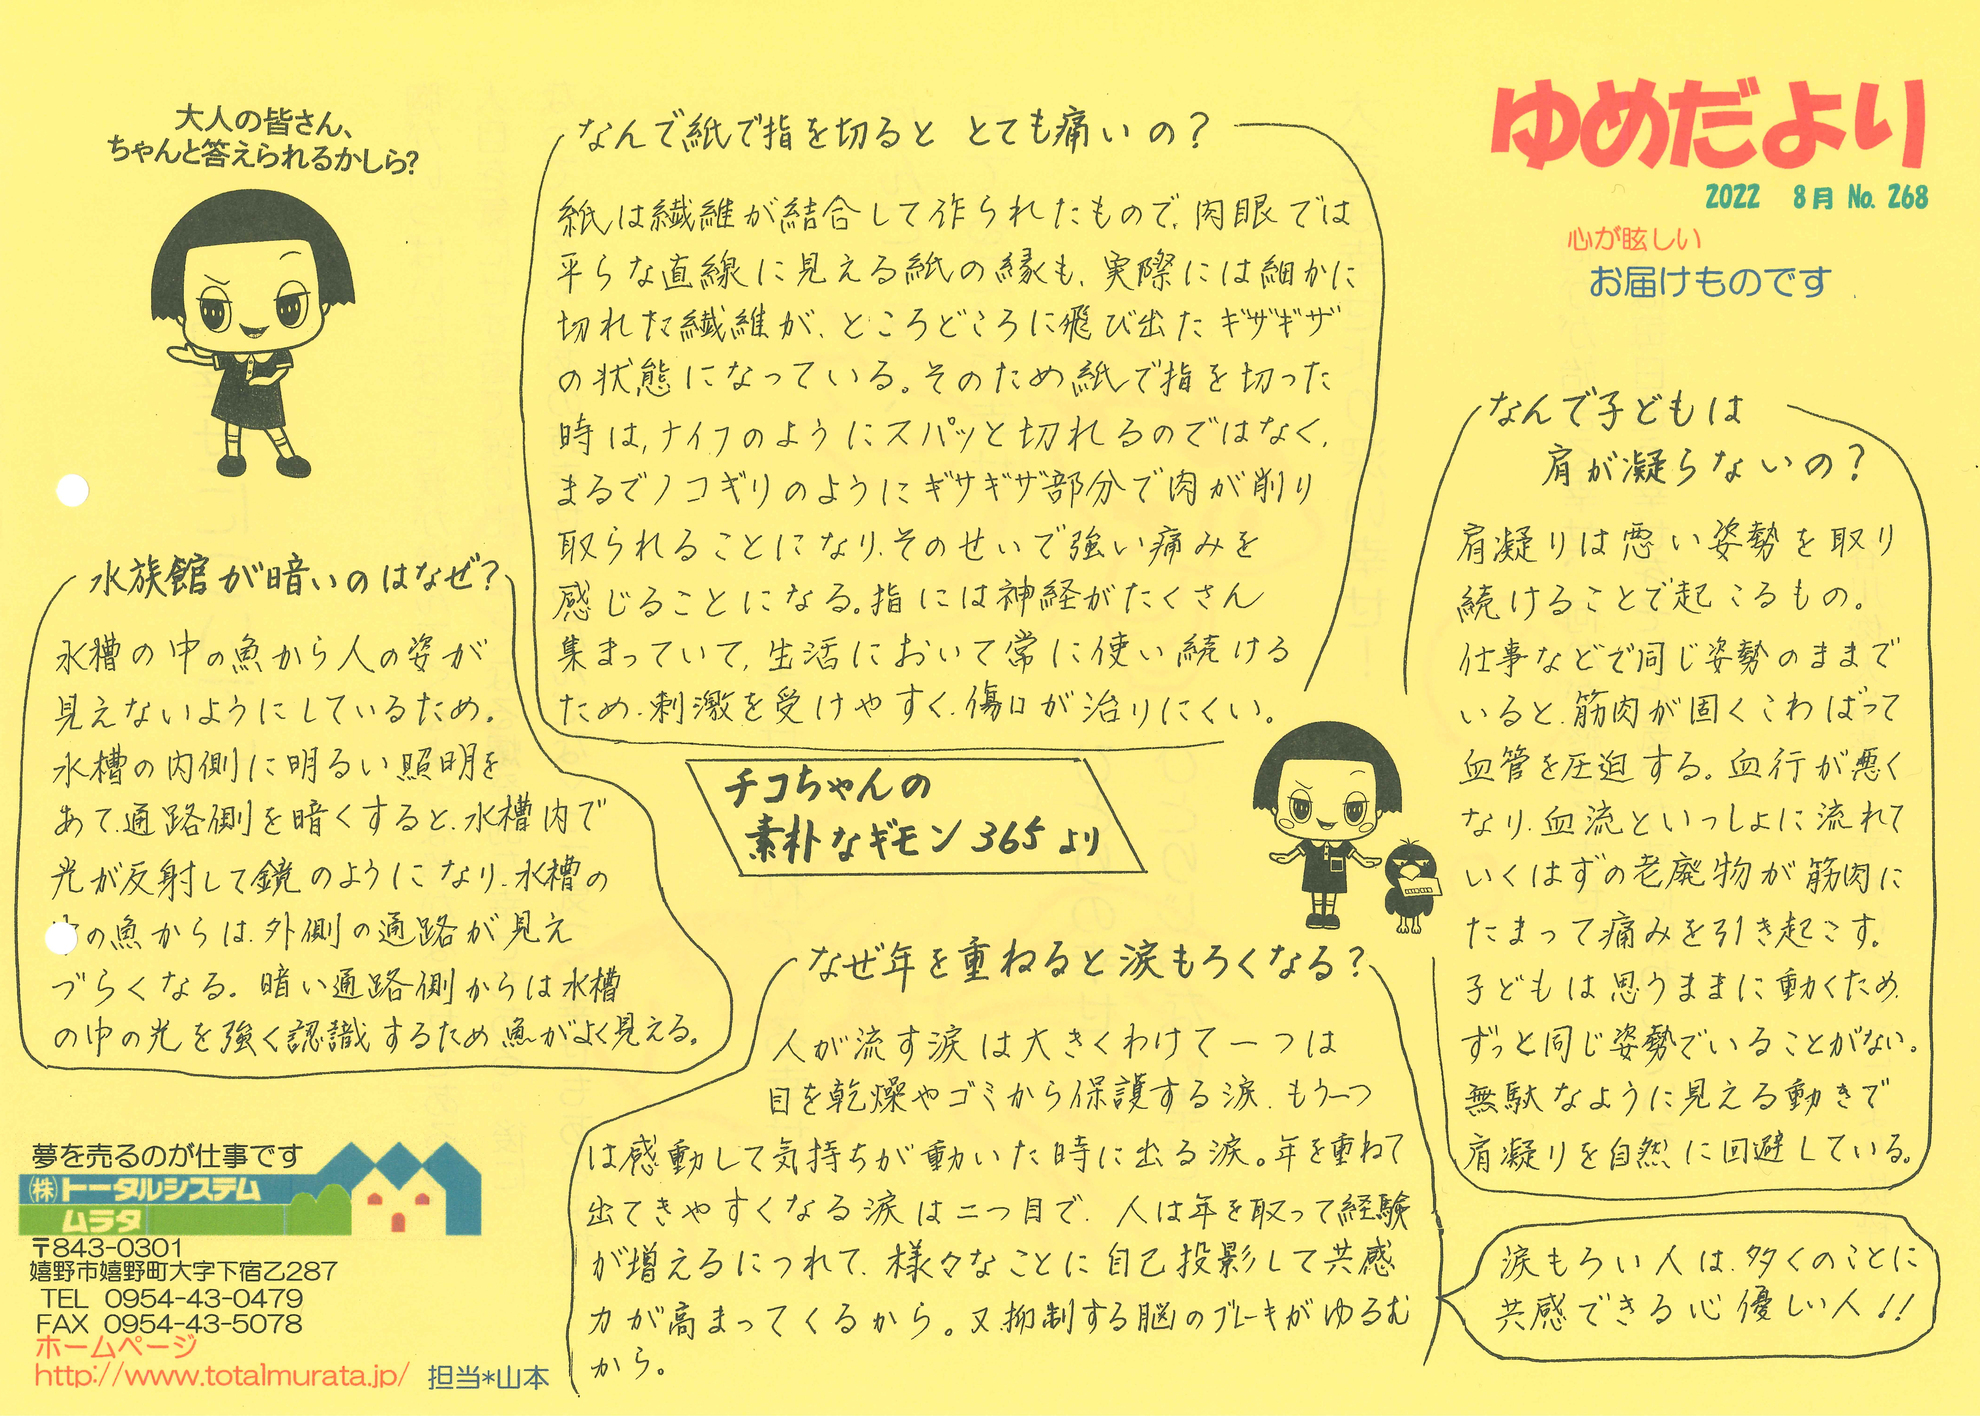 ゆめだより
2022 8月 No. 268
心が眩しい
お届けものです
大人の皆さん、
ちゃんと答えられるかしら?
なんで紙で指を切ると とても痛いの?
紙は繊維が結合して作られたもので、肉眼では
平らな直線に見える紙の縁も、実際には細かに
切れた繊維が、ところどころに飛び出たギザギザ
の状態になっている。そのため紙で指を切った
時は、ナイフのようにスパッと切れるのではなく、
まるでノコギリのようにギザギザ部分で肉が削り
取られることになり、そのせいで強い痛みを
感じることになる。指には神経がたくさん
集まっていて、生活において常に使い続ける
ため、刺激を受けやすく、傷口が治りにくい。
なんで子どもは
肩が凝らないの?
肩凝りは悪い姿勢を取り
続けることで起こるもの。
仕事などで同じ姿勢のままで
いると、筋肉が固くこわばって
血管を圧迫する。血行が悪く
なり、血流といっしょに流れて
いくはずの老廃物が筋肉に
たまって痛みを引き起こす。
子どもは思うままに動くため、
ずっと同じ姿勢でいることがない。
無駄なように見える動きで
肩凝りを自然に回避している。
水族館が暗いのはなぜ?
水槽の中の魚から人の姿が
見えないようにしているため。
水槽の内側に明るい照明を
あて、通路側を暗くすると、水槽内で
光が反射して鏡のようになり、水槽の
の魚からは、外側の通路が見え
づらくなる。暗い通路側からは水槽
の中の光を強く認識するため魚がよく見える。
チコちゃんの
素朴なギモン365より
なぜ年を重ねると涙もろくなる?
人が流す涙は大きくわけて一つは
目を乾燥やゴミから保護する涙、もう一つ
は感動して気持ちが動いた時に出る涙。年を重ねて
出てきやすくなる涙は二つ目で、人は年を取って経験
が増えるにつれて、様々なことに自己投影して共感
力が高まってくるから。又抑制する脳のブレーキがゆるむ
から。
涙もろい人は、多くのことに
共感できる心優しい人!!
夢を売るのが仕事です
㈱トータルシステム
ムラタ
〒843-0301
嬉野市嬉野町大字下宿乙287
TEL 0954-43-0479
FAX 0954-43-5078
ホームページ
http://www.totalmurata.jp/ 担当*山本